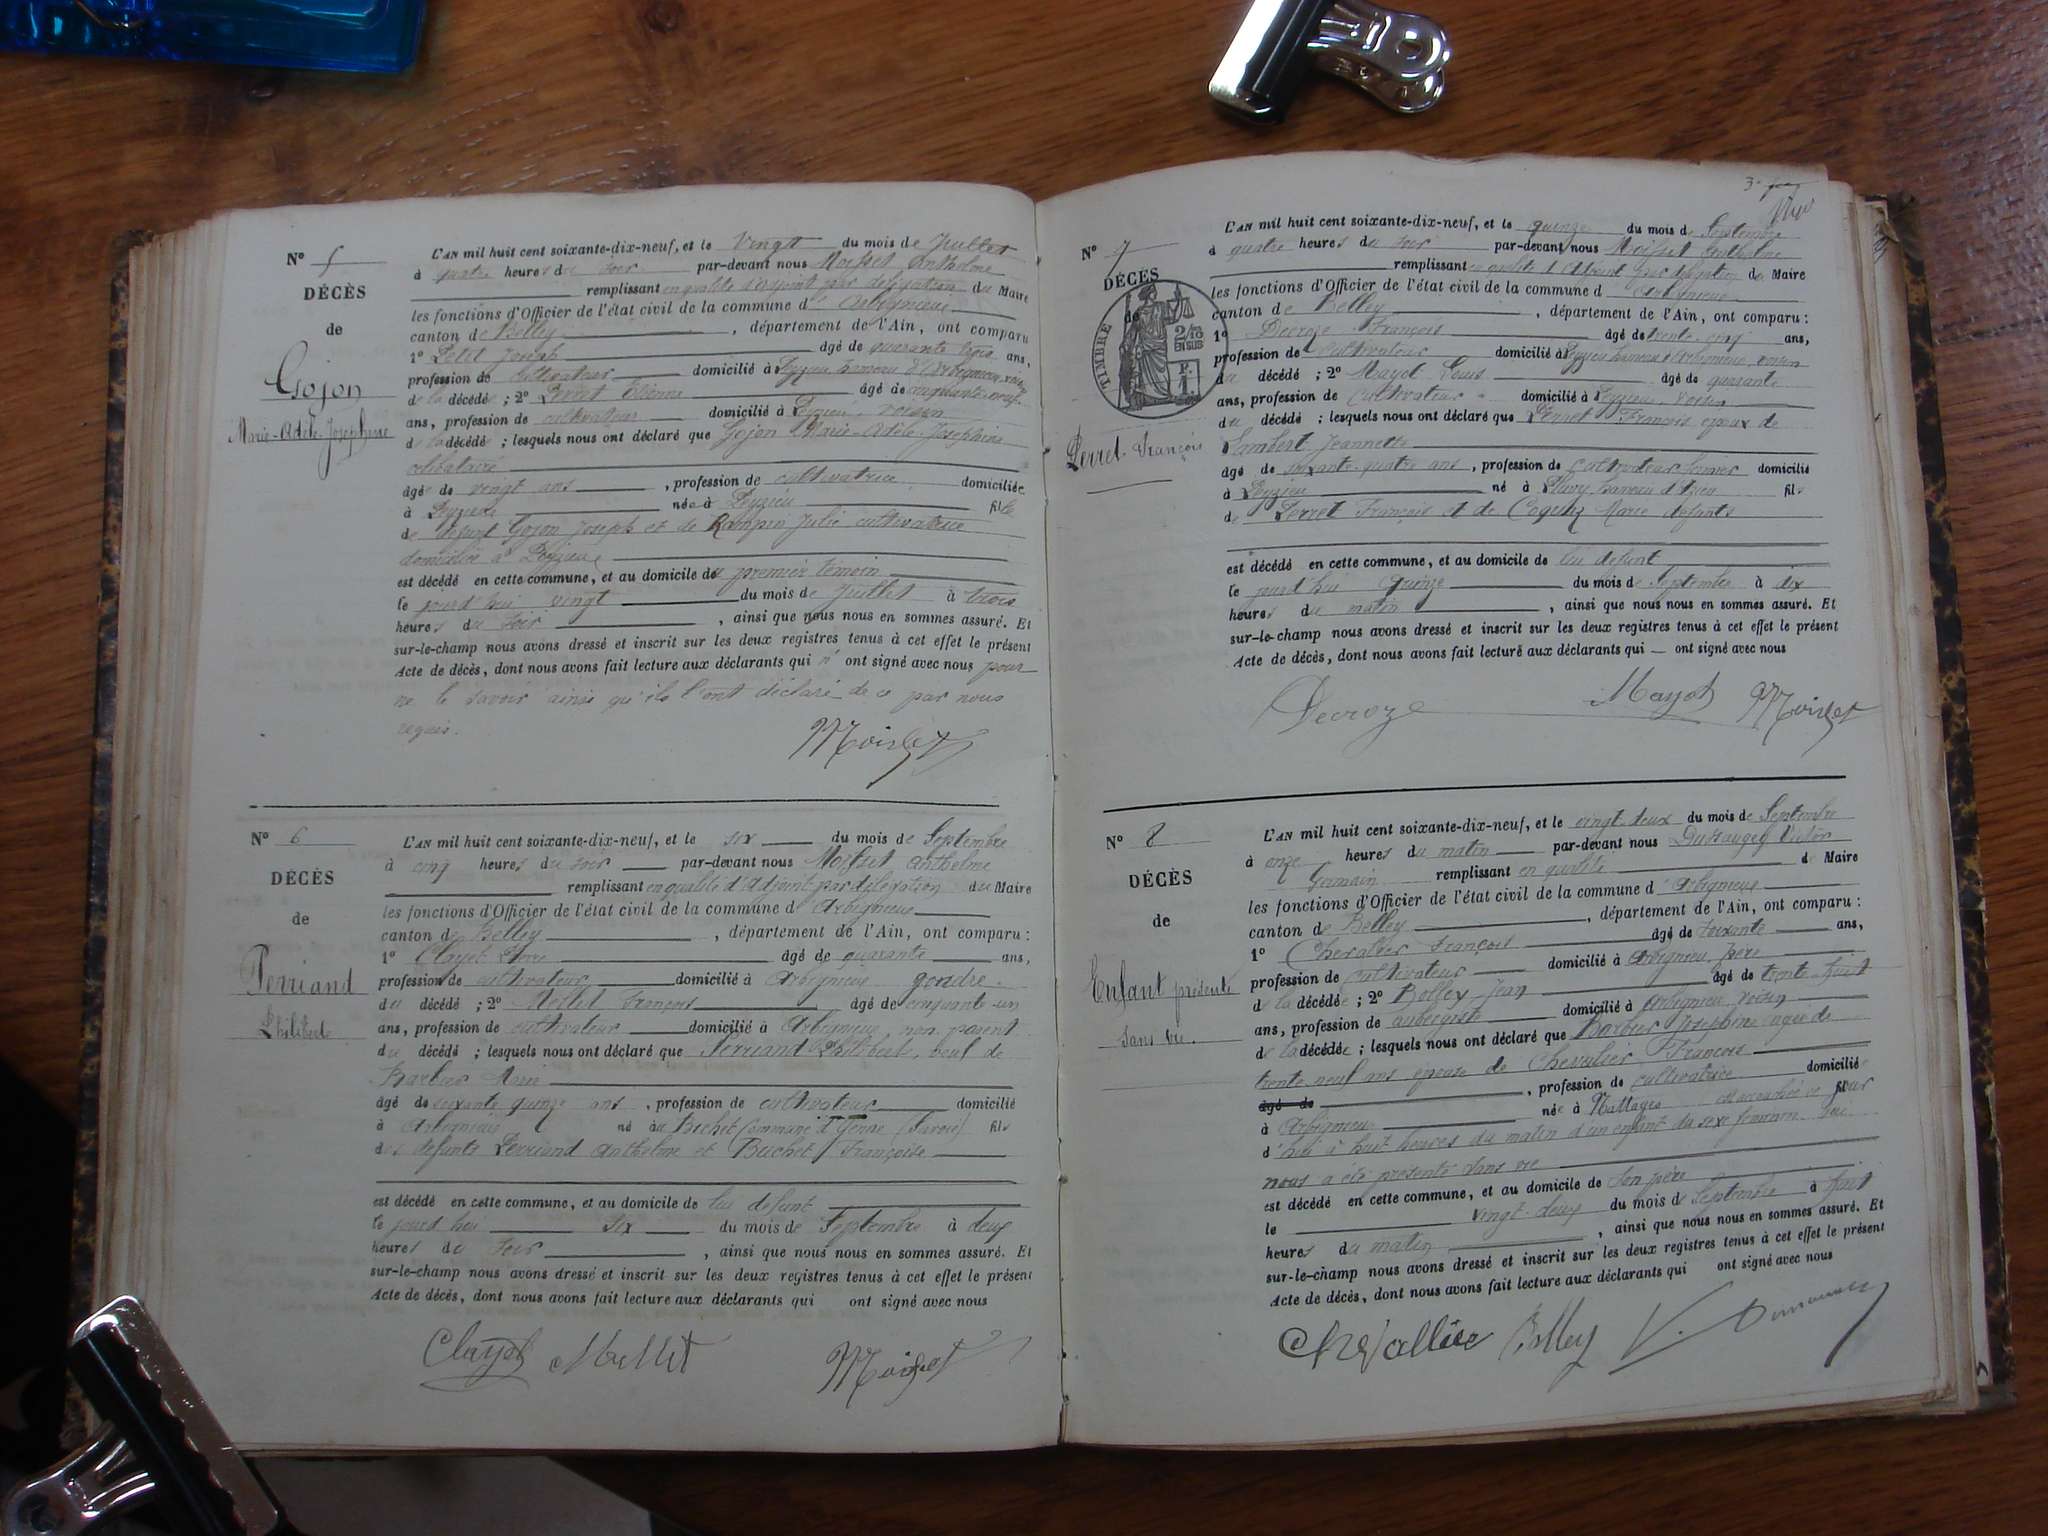 N° 5
DÉCÈS
de
Gojon
Marie-Adèle-Joséphine
L'AN mil huit cent soixante-dix-neuf, et le vingt du mois de Juillet
à quatre heures du soir par-devant nous Moisset Anthelme
remplissant en qualité d'adjoint par délégation du Maire
les fonctions d'Officier de l'état civil de la commune d'Arbignieu
canton de Belley, département de l'Ain, ont comparu
1° Petit Joseph âgé de quarante trois ans,
profession de cultivateur domicilié à Peyzieu hameau d'Arbignieu, voisin
de la décédée ; 2° Perret Etienne âgé de cinquante-neuf
ans, profession de cultivateur domicilié à Peyzieu, voisin
de la décédée ; lesquels nous ont déclaré que Gojon Marie-Adèle-Joséphine
célibataire
âgée de vingt ans, profession de cultivatrice domiciliée
à Peyzieu née à Peyzieu fille
de défunt Gojon Joseph et de Rampin Julie cultivatrice
domiciliée à Peyzieu
est décédé en cette commune, et au domicile du premier témoin
le jourd'hui vingt du mois de Juillet à trois
heures du soir, ainsi que nous nous en sommes assuré. Et
sur-le-champ nous avons dressé et inscrit sur les deux registres tenus à cet effet le présent
Acte de décès, dont nous avons fait lecture aux déclarants qui n'ont signé avec nous pour
ne le savoir ainsi qu'ils l'ont déclaré de ce par nous
requis.
Moisset
N° 6
DÉCÈS
de
Perriand
Philibert
L'AN mil huit cent soixante-dix-neuf, et le six du mois de Septembre
à cinq heures du soir par-devant nous Moisset Anthelme
remplissant en qualité d'Adjoint par délégation du Maire
les fonctions d'Officier de l'état civil de la commune d'Arbignieu
canton de Belley, département de l'Ain, ont comparu :
1° Clayet Pierre âgé de quarante ans,
profession de cultivateur domicilié à Arbignieu gendre
du décédé ; 2° Mellet François âgé de cinquante-un
ans, profession de cultivateur domicilié à Arbignieu, non parent
du décédé ; lesquels nous ont déclaré que Perriand Philibert, veuf de
Barbier Marie
âgé de soixante quinze ans, profession de cultivateur domicilié
à Arbignieu né au Bichet Commune d'Yenne (Savoie) fils
des défunts Perriand Anthelme et Buchet Françoise
est décédé en cette commune, et au domicile de lui défunt
le jourd'hui six du mois de Septembre à deux
heures du soir, ainsi que nous nous en sommes assuré. Et
sur-le-champ nous avons dressé et inscrit sur les deux registres tenus à cet effet le présent
Acte de décès, dont nous avons fait lecture aux déclarants qui ont signé avec nous
Clayet Mellet Moisset
N° 7
DÉCÈS
de
TIMBRE
2/10 EN SUS
F. 1.
Perret François
L'AN mil huit cent soixante-dix-neuf, et le quinze du mois de Septembre
à quatre heures du soir par-devant nous Moisset Anthelme
remplissant en qualité d'Adjoint par délégation du Maire
les fonctions d'Officier de l'état civil de la commune d'Arbignieu
canton de Belley, département de l'Ain, ont comparu :
1° Decroze François âgé de trente-cinq ans,
profession de cultivateur domicilié à Peyzieu hameau d'Arbignieu, voisin
du décédé ; 2° Mayot Louis âgé de quarante
ans, profession de cultivateur domicilié à Peyzieu, voisin
du décédé ; lesquels nous ont déclaré que Perret François époux de
Lambert Jeannette
âgé de soixante-quatre ans, profession de cultivateur fermier domicilié
à Peyzieu né à fils
de Perret François et de Marie défunts
est décédé en cette commune, et au domicile de lui défunt
le jourd'hui quinze du mois de Septembre à dix
heures du matin, ainsi que nous nous en sommes assuré. Et
sur-le-champ nous avons dressé et inscrit sur les deux registres tenus à cet effet le présent
Acte de décès, dont nous avons fait lecture aux déclarants qui — ont signé avec nous
Decroze Mayot Moisset
N° 8
DÉCÈS
de
Enfant présenté
sans vie.
L'AN mil huit cent soixante-dix-neuf, et le vingt-deux du mois de Septembre
à onze heures du matin par-devant nous Dussaugey Victor
Germain remplissant en qualité de Maire
les fonctions d'Officier de l'état civil de la commune d'Arbignieu
canton de Belley, département de l'Ain, ont comparu :
1° Chevalier François âgé de soixante ans,
profession de cultivateur domicilié à Arbignieu, père
de la décédée ; 2° Bolley Jean âgé de trente-huit
ans, profession de aubergiste domicilié à Arbignieu, voisin
de la décédée ; lesquels nous ont déclaré que Barbier Joséphine âgée de
trente neuf ans épouse de Chevalier François
âgé de, profession de cultivatrice domiciliée
à Arbignieu née à Nattages est accouchée ce jour
d'hui à huit heures du matin d'un enfant du sexe féminin qui
nous a été présenté sans vie
est décédé en cette commune, et au domicile de son père
le vingt-deux du mois de Septembre à huit
heures du matin, ainsi que nous nous en sommes assuré. Et
sur-le-champ nous avons dressé et inscrit sur les deux registres tenus à cet effet le présent
Acte de décès, dont nous avons fait lecture aux déclarants qui ont signé avec nous
Chevallier Bolley